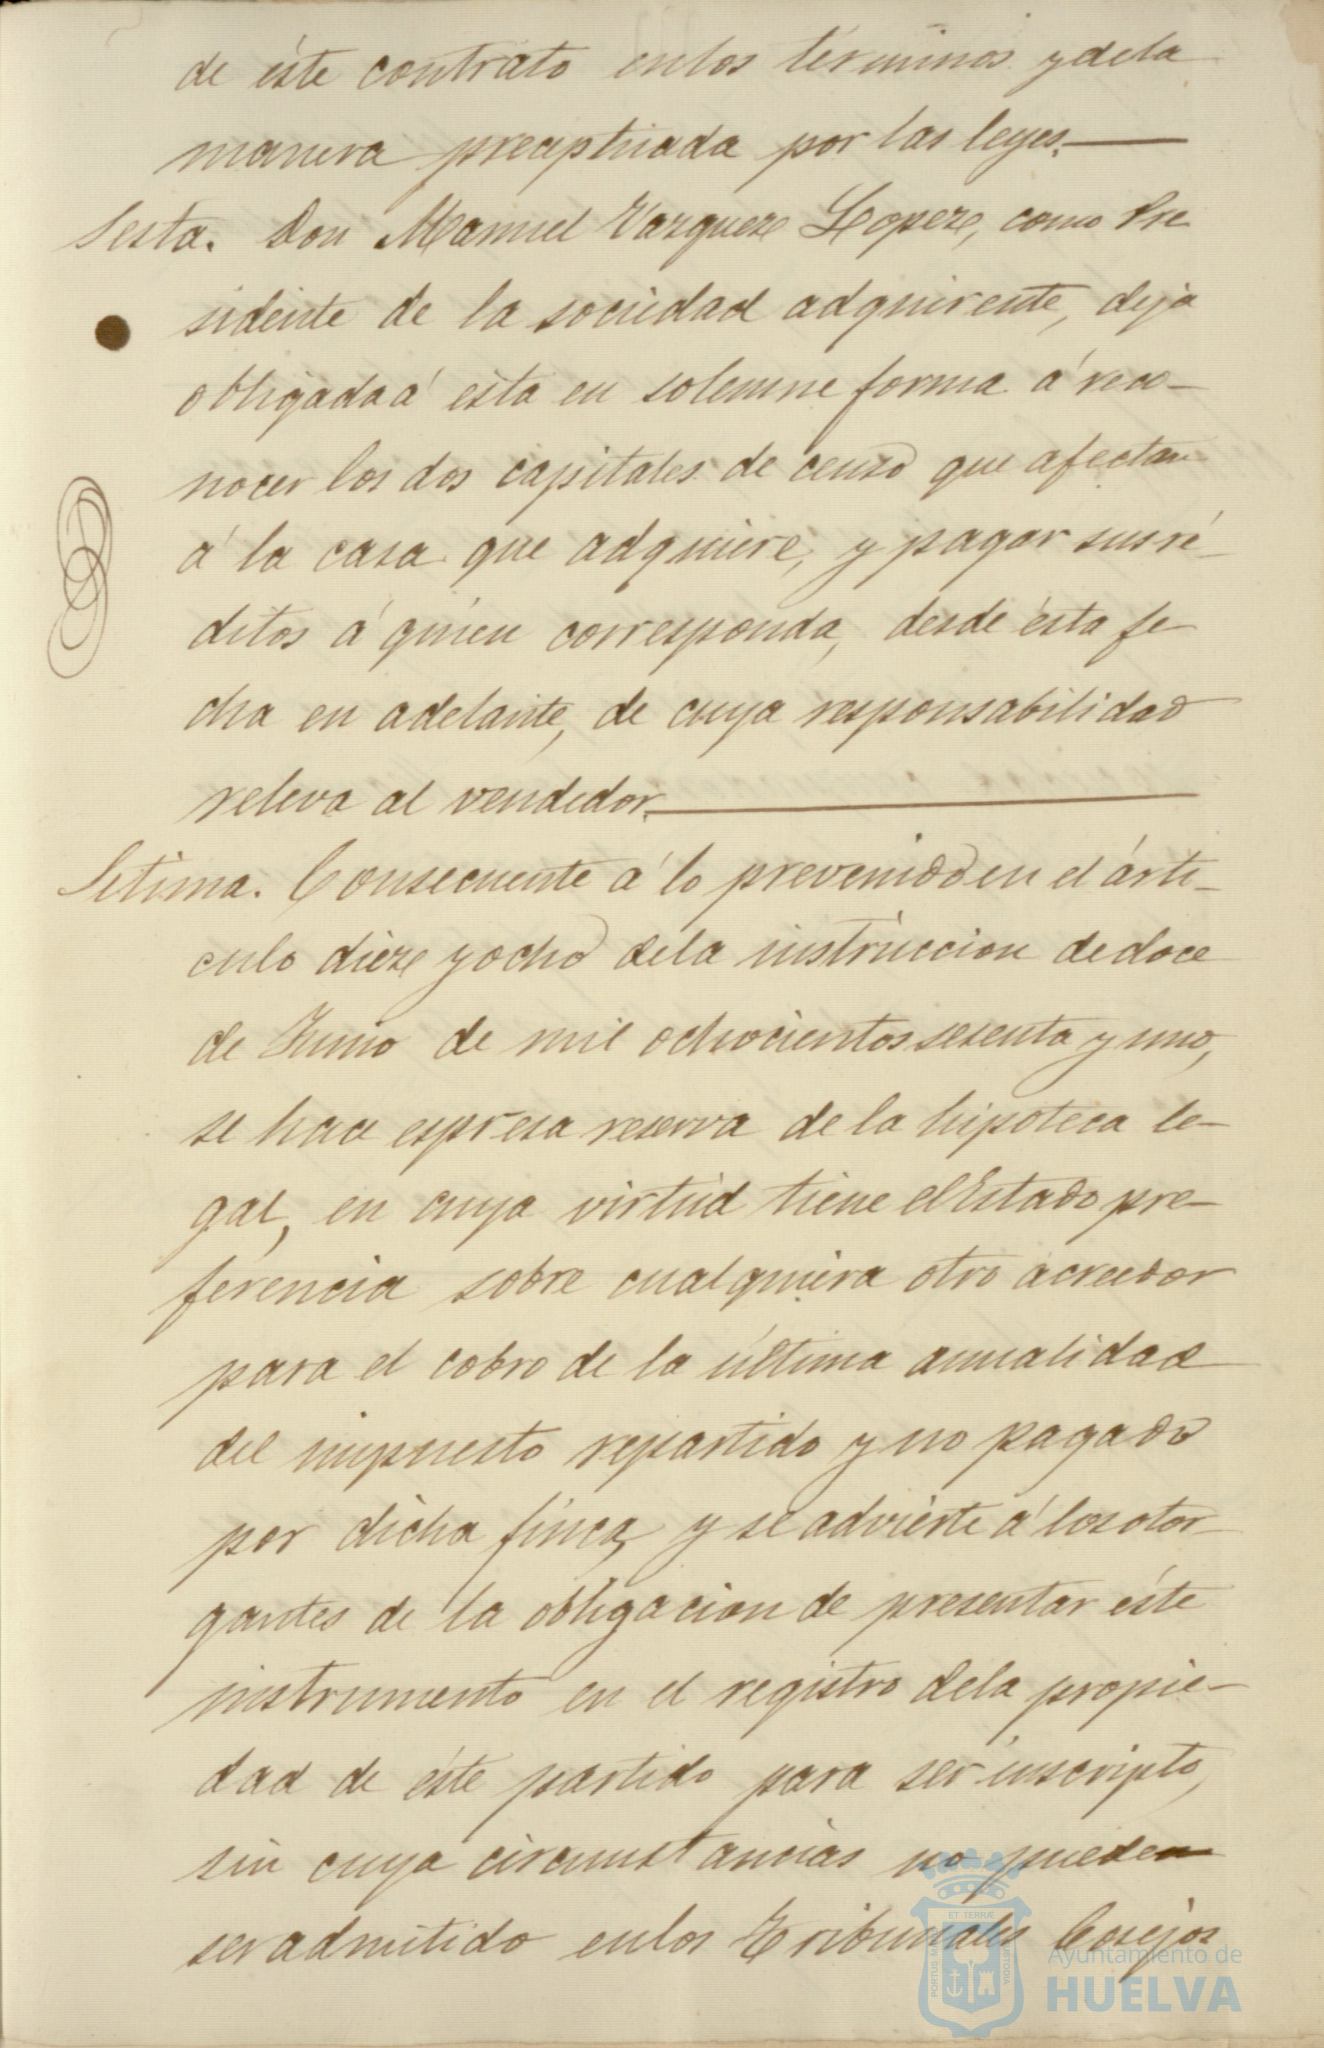 de éste contrato enlos términos y dela
manera preceptuada por las leyes.
Sesta. Don Manuel Vazquez Lopez, como Pre
sidente de la sociedad adquirente, deja
obligada á ésta en solemne forma á reco-
nocer los dos capitales de censo que afectan
á la casa que adquiere, y pagar sus ré-
ditos á quien corresponda, desde ésta fe
cha en adelante, de cuya responsabilidad
releva al vendedor.
Setima. Consecuente á lo prevenido en el árti-
culo diez y ocho dela instruccion de doce
de Junio de mil ochocientos sesenta y uno,
se hace espresa reserva de la hipoteca le-
gal, en cuya virtud tiene el Estado pre-
ferencia sobre cualquiera otro acreedor
para el cobro de la última anualidad
del impuesto repartido y no pagado
por dicha finca, y se advierte á los otor-
gantes de la obligacion de presentar éste
instrumento en el registro dela propie-
dad de éste partido para ser inscripto,
sin cuya circumstancias no pueden
ser admitido enlos Tribunales Cosejos
ET TERRÆ
PORTUS M
CUSTODIA
Ayuntamiento de
HUELVA